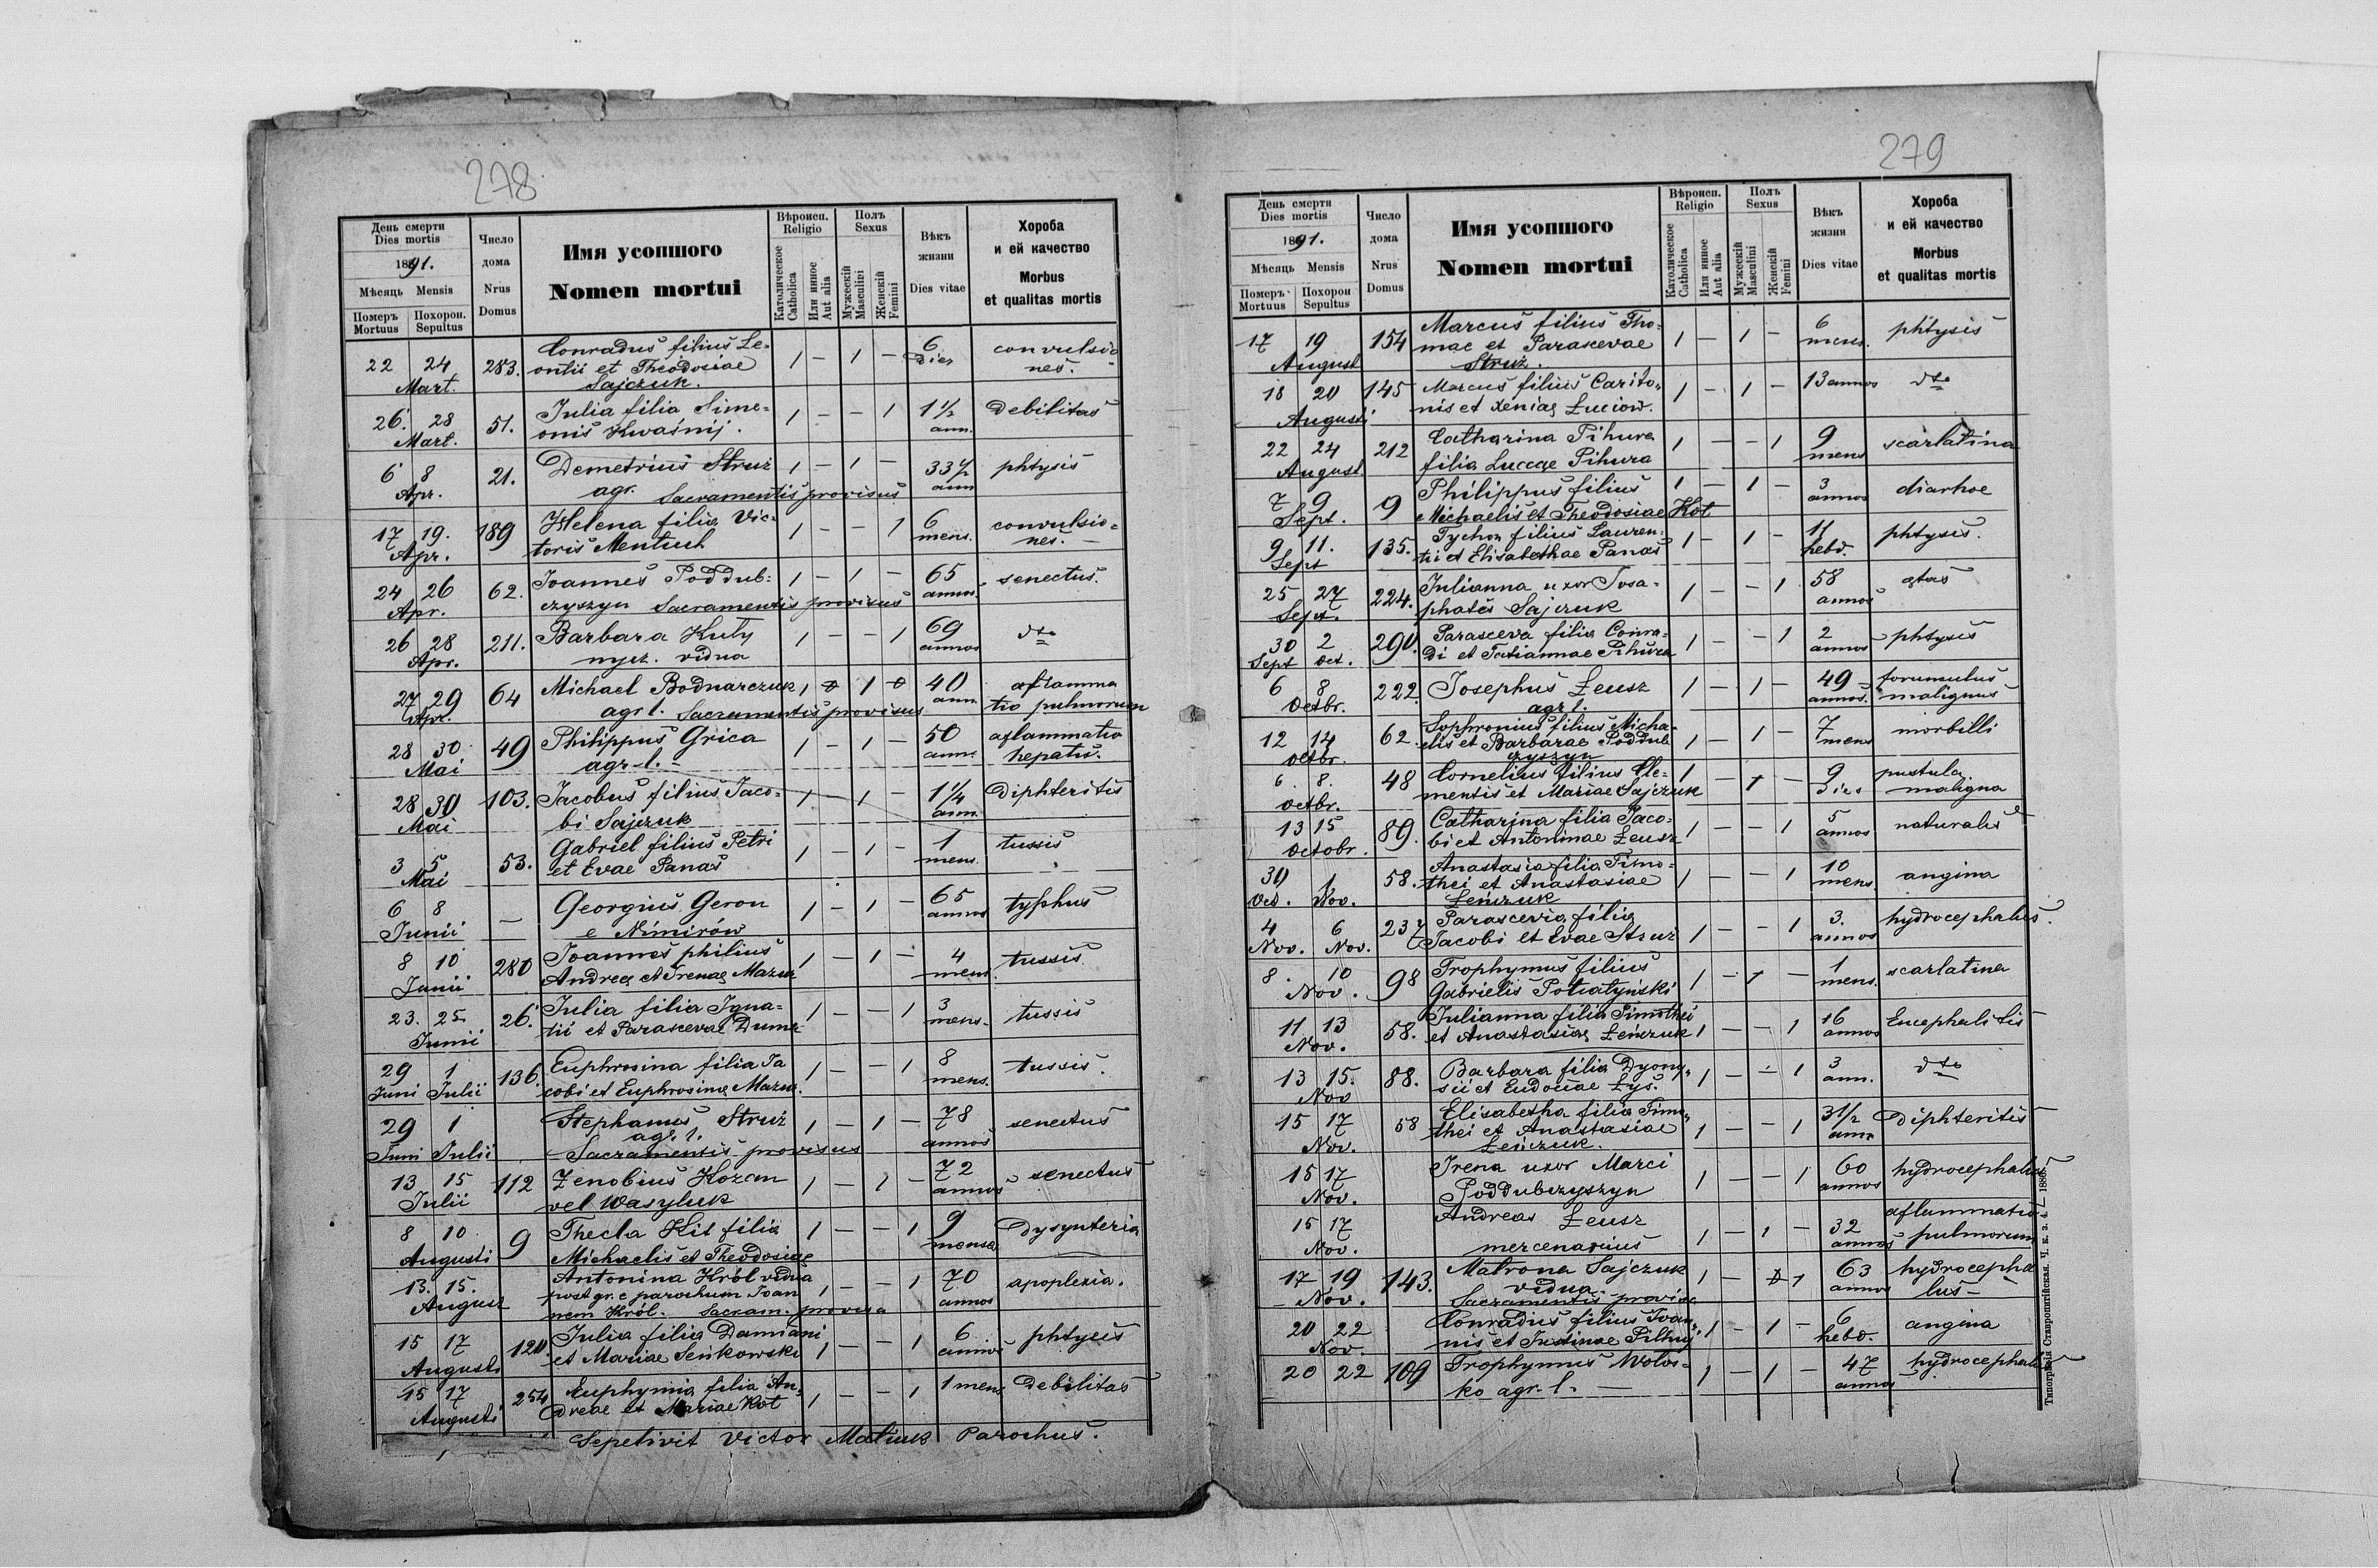 278
День смерти
Dies mortis
1891.
Мѣсяць Mensis
Померъ Mortuus
Похорон. Sepultus
Число дома
Nrus Domus
Имя усопшого
Nomen mortui
Вѣроисп. Religio
Католическое Catholica
Или инное Aut alia
Полъ Sexus
Мужескій Masculini
Женскій Femini
Вѣкъ жизни
Dies vitae
Хороба и ей качество
Morbus et qualitas mortis
22 24 Mart. 283. Conradus filius Le- 1 — 1 — 6 dies convulsio
ontii et Theodosiae nes.
Sajczuk.
26. 28 Mart. 51. Julia filia Sime= 1 — — 1 1½ ann. debilitas
onis Kwaśnij.
6 8 Apr. 21. Demetrius Struz 1 — 1 — 33½ ann phtysis
agr. Sacramentis provisus
17 19. Apr. 189 Helena filia Vic- 1 — — 1 6 mens. convulsio=
toris Mentuch nes. —
24 26 Apr. 62. Joannes Poddub= 1 — 1 — 65 annos senectus.
czyszyn Sacramentis provisus
26 28 Apr. 211. Barbara Kuły 1 — — 1 69 annos dto
nycz. vidua
27 29 Apr. 64 Michael Bodnarczuk 1 1 40 ann. aflamma
agr l. Sacramentis provisus tio pulmorum
28 30 Mai 49 Philippus Grica 1 — 1 — 50 ann. aflammatio
agr. l. — hepatis.
28 30 Mai 103. Jacobus filius Jaco- 1 — 1 — 1¼ ann. Diphteritis
bi Sajczuk
3 5 Mai 53. Gabriel filius Petri 1 — 1 — 1 mens. tussis
et Evae Panas
6 8 Junii — Georgius Geron 1 — 1 — 65 annos typhus
e Nimirów
8 10 Junii 280 Joannes philius 1 — 1 — 4 mens. tussis
Andreae et Irenae Mazur
23. 25 Junii 26. Julia filia Igna- 1 — — 1 3 mens. tussis
tii et Parascevae Duma
29 Juni 1 Julii 136. Euphrosina filia Ja 1 — — 1 8 mens. tussis.
cobi et Euphrosinae Mazur.
29 Juni 1 Julii Stephanus Struz 1 — 1 — 78 annos senectus
agr. l.
Sacramentis provisus
13 15 Julii 112 Zenobius Kozan 1 — 1 — 72 annos senectus
vel Wasyluk
8 10 Augusti 9 Thecla Kit filia 1 — — 1 9 menses Dysynteria
Michaelis et Theodosiae
13. 15. August Antonina Król vidua 1 — — 1 70 annos apoplexia.
post gr. c parochum Joan
nem Król. Sacram. provisa
15 17 Augusti 120. Julia filia Damiani 1 — — 1 6 annos phtysis
et Mariae Seńkowski
15 17 Augusti 254 Euphymia filia An- 1 — — 1 1 mens Debilitas
dreae et Mariae Kot
Sepelivit Victor Matiuk Parochus.
279
День смерти
Dies mortis
1891.
Мѣсяць Mensis
Померъ Mortuus
Похорон Sepultus
Число дома
Nrus Domus
Имя усопшого
Nomen mortui
Вѣроисп. Religio
Католическое Catholica
Или инное Aut alia
Полъ Sexus
Мужескій Masculini
Женскій Femini
Вѣкъ жизни
Dies vitae
Хороба и ей качество
Morbus et qualitas mortis
17 19 August 154 Marcus filius Tho- 1 — 1 — 6 mens. phtysis
mae et Parascevae
Struz.
18 20 Augusti 145 Marcus filius Carito- 1 — 1 — 13 annos dto
nis et Xeniae Łuciow.
22 24 August. 212 Catharina Pihura 1 — — 1 9 mens scarlatina
filia Luccae Pihura
7 9 Sept. 9 Philippus filius 1 — 1 — 3 annos diarhoe
Michaelis et Theodosiae Kot
9 11. Sept 135. Tychon filius Lauren- 1 — 1 — 11 hebd. phtysis.
tii et Elisabethae Panas
25 27 Sept. 224. Julianna uxor Josa- 1 — — 1 58 annos ętas
phatis Sajczuk
30 Sept 2 Oct. 290. Parasceva filia Conra- 1 — — 1 2 annos phtysis
di et Tatiannae Pihura
6 8 Octbr. 222. Josephus Łeusz 1 — 1 — 49 annos. forumulus
agr l. malignus
12 14 Octbr. 62. Sophronius filius Micha- 1 — 1 — 7 mens morbilli
elis et Barbarae Poddub
czyszyn
6. 8. Octbr. 48 Cornelius filius Cle- 1 — 1 — 9 dies pustula
mentis et Mariae Sajczuk maligna
13 15 Octobr. 89. Catharina filia Jaco- 1 — — 1 5 annos naturalis
bi et Antoninae Łeusz
30 Oct. 1 Nov. 58. Anastasia filia Timo- 1 — — 1 10 mens. angina
thei et Anastasiae
Łeńczuk
4 Nov. 6 Nov. 237 Parascevia filia 1 — — 1 3. annos hydrocephalus.
Jacobi et Evae Struz
8. 10 Nov. 98 Trophymus filius 1 — 1 — 1 mens. scarlatina
Gabrielis Potiatyński
11 13 Nov. 58. Julianna filia Timothei 1 — — 1 16 annos Encephalitis
et Anastasiae Łeńczuk
13 15. Nov 88. Barbara filia Dyony- 1 — — 1 3 ann. dto
sii et Eudociae Łys.
15 17 Nov. 58 Elisabetha filia Timo- 1 — — 1 3½ ann Diphteritis
thei et Anastasiae
Łeńczuk.
15 17 Nov. Irena uxor Marci 1 — — 1 60 annos hydrocephalus
Poddubczyszyn
15 17 Nov. Andreas Łeusz 1 — 1 — 32 annos aflammatio
mercenarius pulmorum
17 19 Nov. 143. Matrona Sajczuk 1 — 1 63 annos hydrocepha
vidua lus —
Sacramentis provisa
20 22 Nov. Conradius filius Joan- 1 — 1 — 6 hebd. angina
nis et Justinae Pilhuj
20 22 109 Trophymus Wołos- 1 — 1 — 47 annos hydrocephalus
ko agr. l. —
Типографія Ставропигійская. Ч. к. з. 4. — 1886.